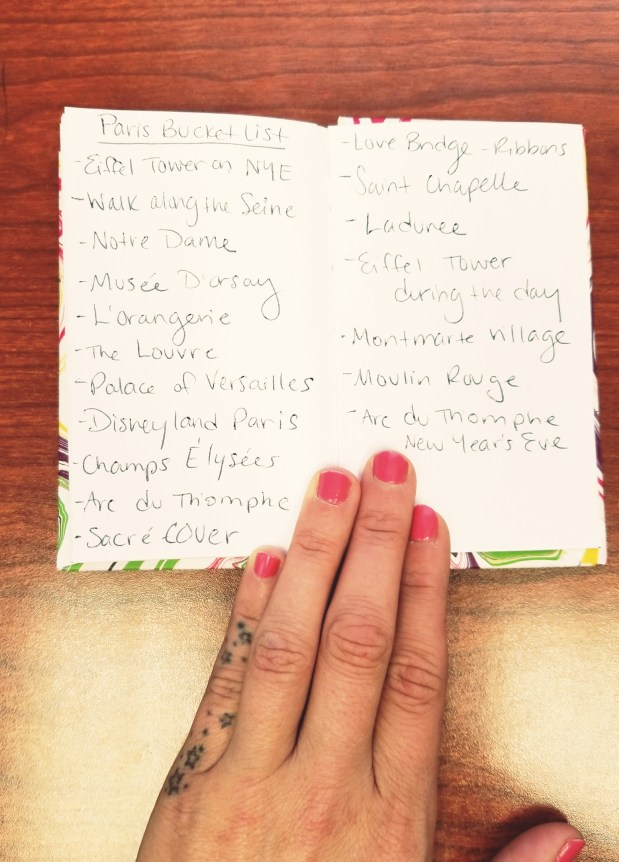 Paris Bucket List
- Eiffel Tower on NYE
- Walk along the Seine
- Notre Dame
- Musée D'orsay
- L'orangerie
- The Louvre
- Palace of Versailles
- Disneyland Paris
- Champs Élysées
- Arc du Thiomphe
- Sacré COUer
- Love Bridge - Ribbons
- Saint Chapelle
- Laduree
- Eiffel Tower
during the day
- Montmarte Village
- Moulin Rouge
- Arc du Thomphe
New Year's Eve